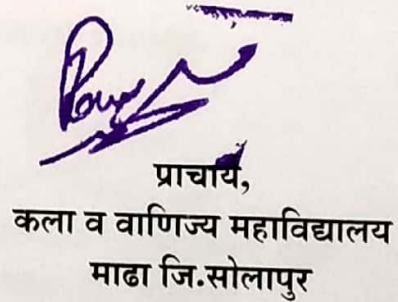 प्राचार्य,
कला व वाणिज्य महाविद्यालय
माढा जि.सोलापुर